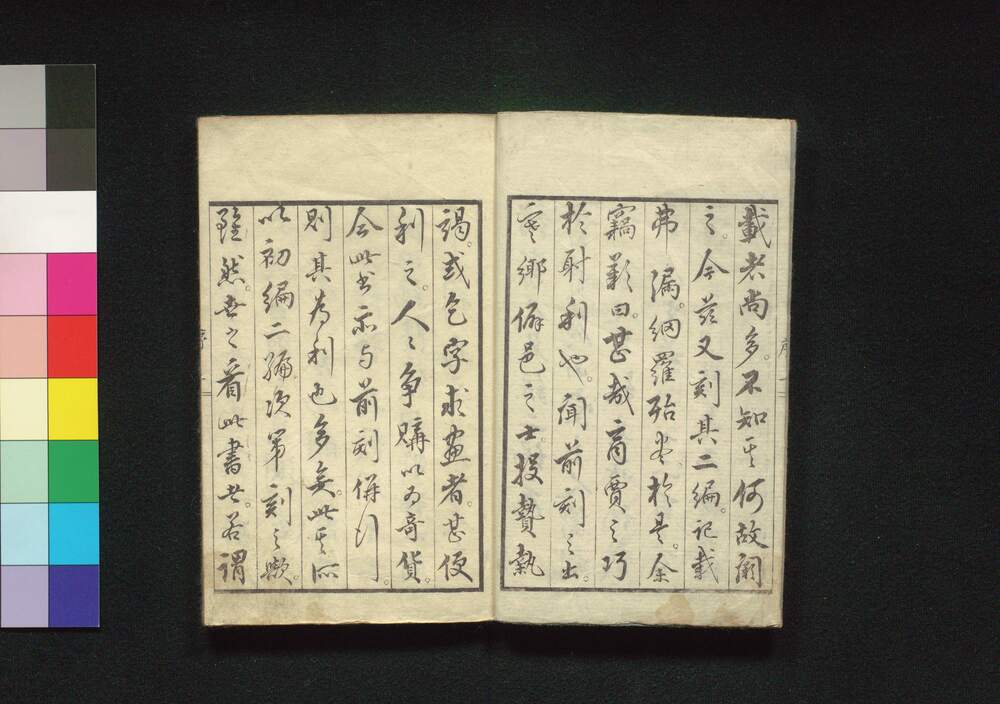 載者尚多。不知其何故闕
之。今茲又刻其二編。記載
弗漏。網羅殆盡。於是。余
竊歎曰。甚哉。商賈之巧
於射利也。聞前刻之出。
寒鄉僻邑之士。投贄執
謁。或乞字求畫者。甚便
利之。人人爭購以為奇貨。
今此書示与前刻併行。
則其為利也多矣。此其所
以初編二編次第刻之歟。
雖然。世之看此書者。若謂
序